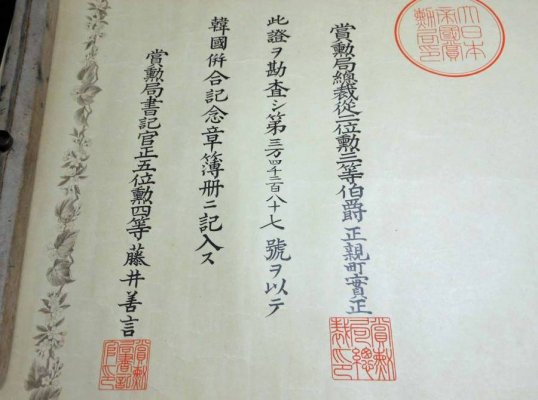 大日本
帝國賞
勲局印
賞勲局總裁從二位勲三等伯爵 正親町實正
賞勲局總裁之印
此證ヲ勘査シ第三万四千二百八十七號ヲ以テ
韓國併合記念章簿册ニ記入ス
賞勲局書記官正五位勲四等 藤井善言
賞勲局書記官印